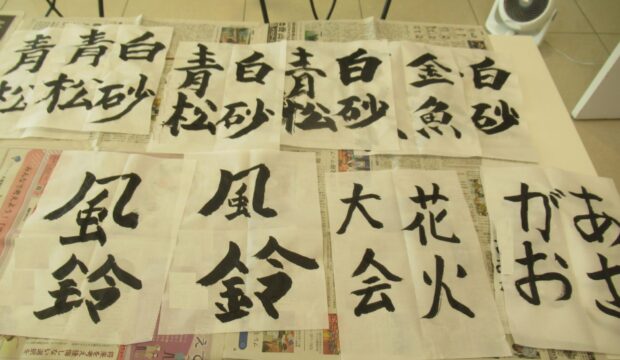 白砂
青松
青松
白砂
青松
白砂
青松
白砂
金魚
風鈴
風鈴
花火
大会
あさ
がお